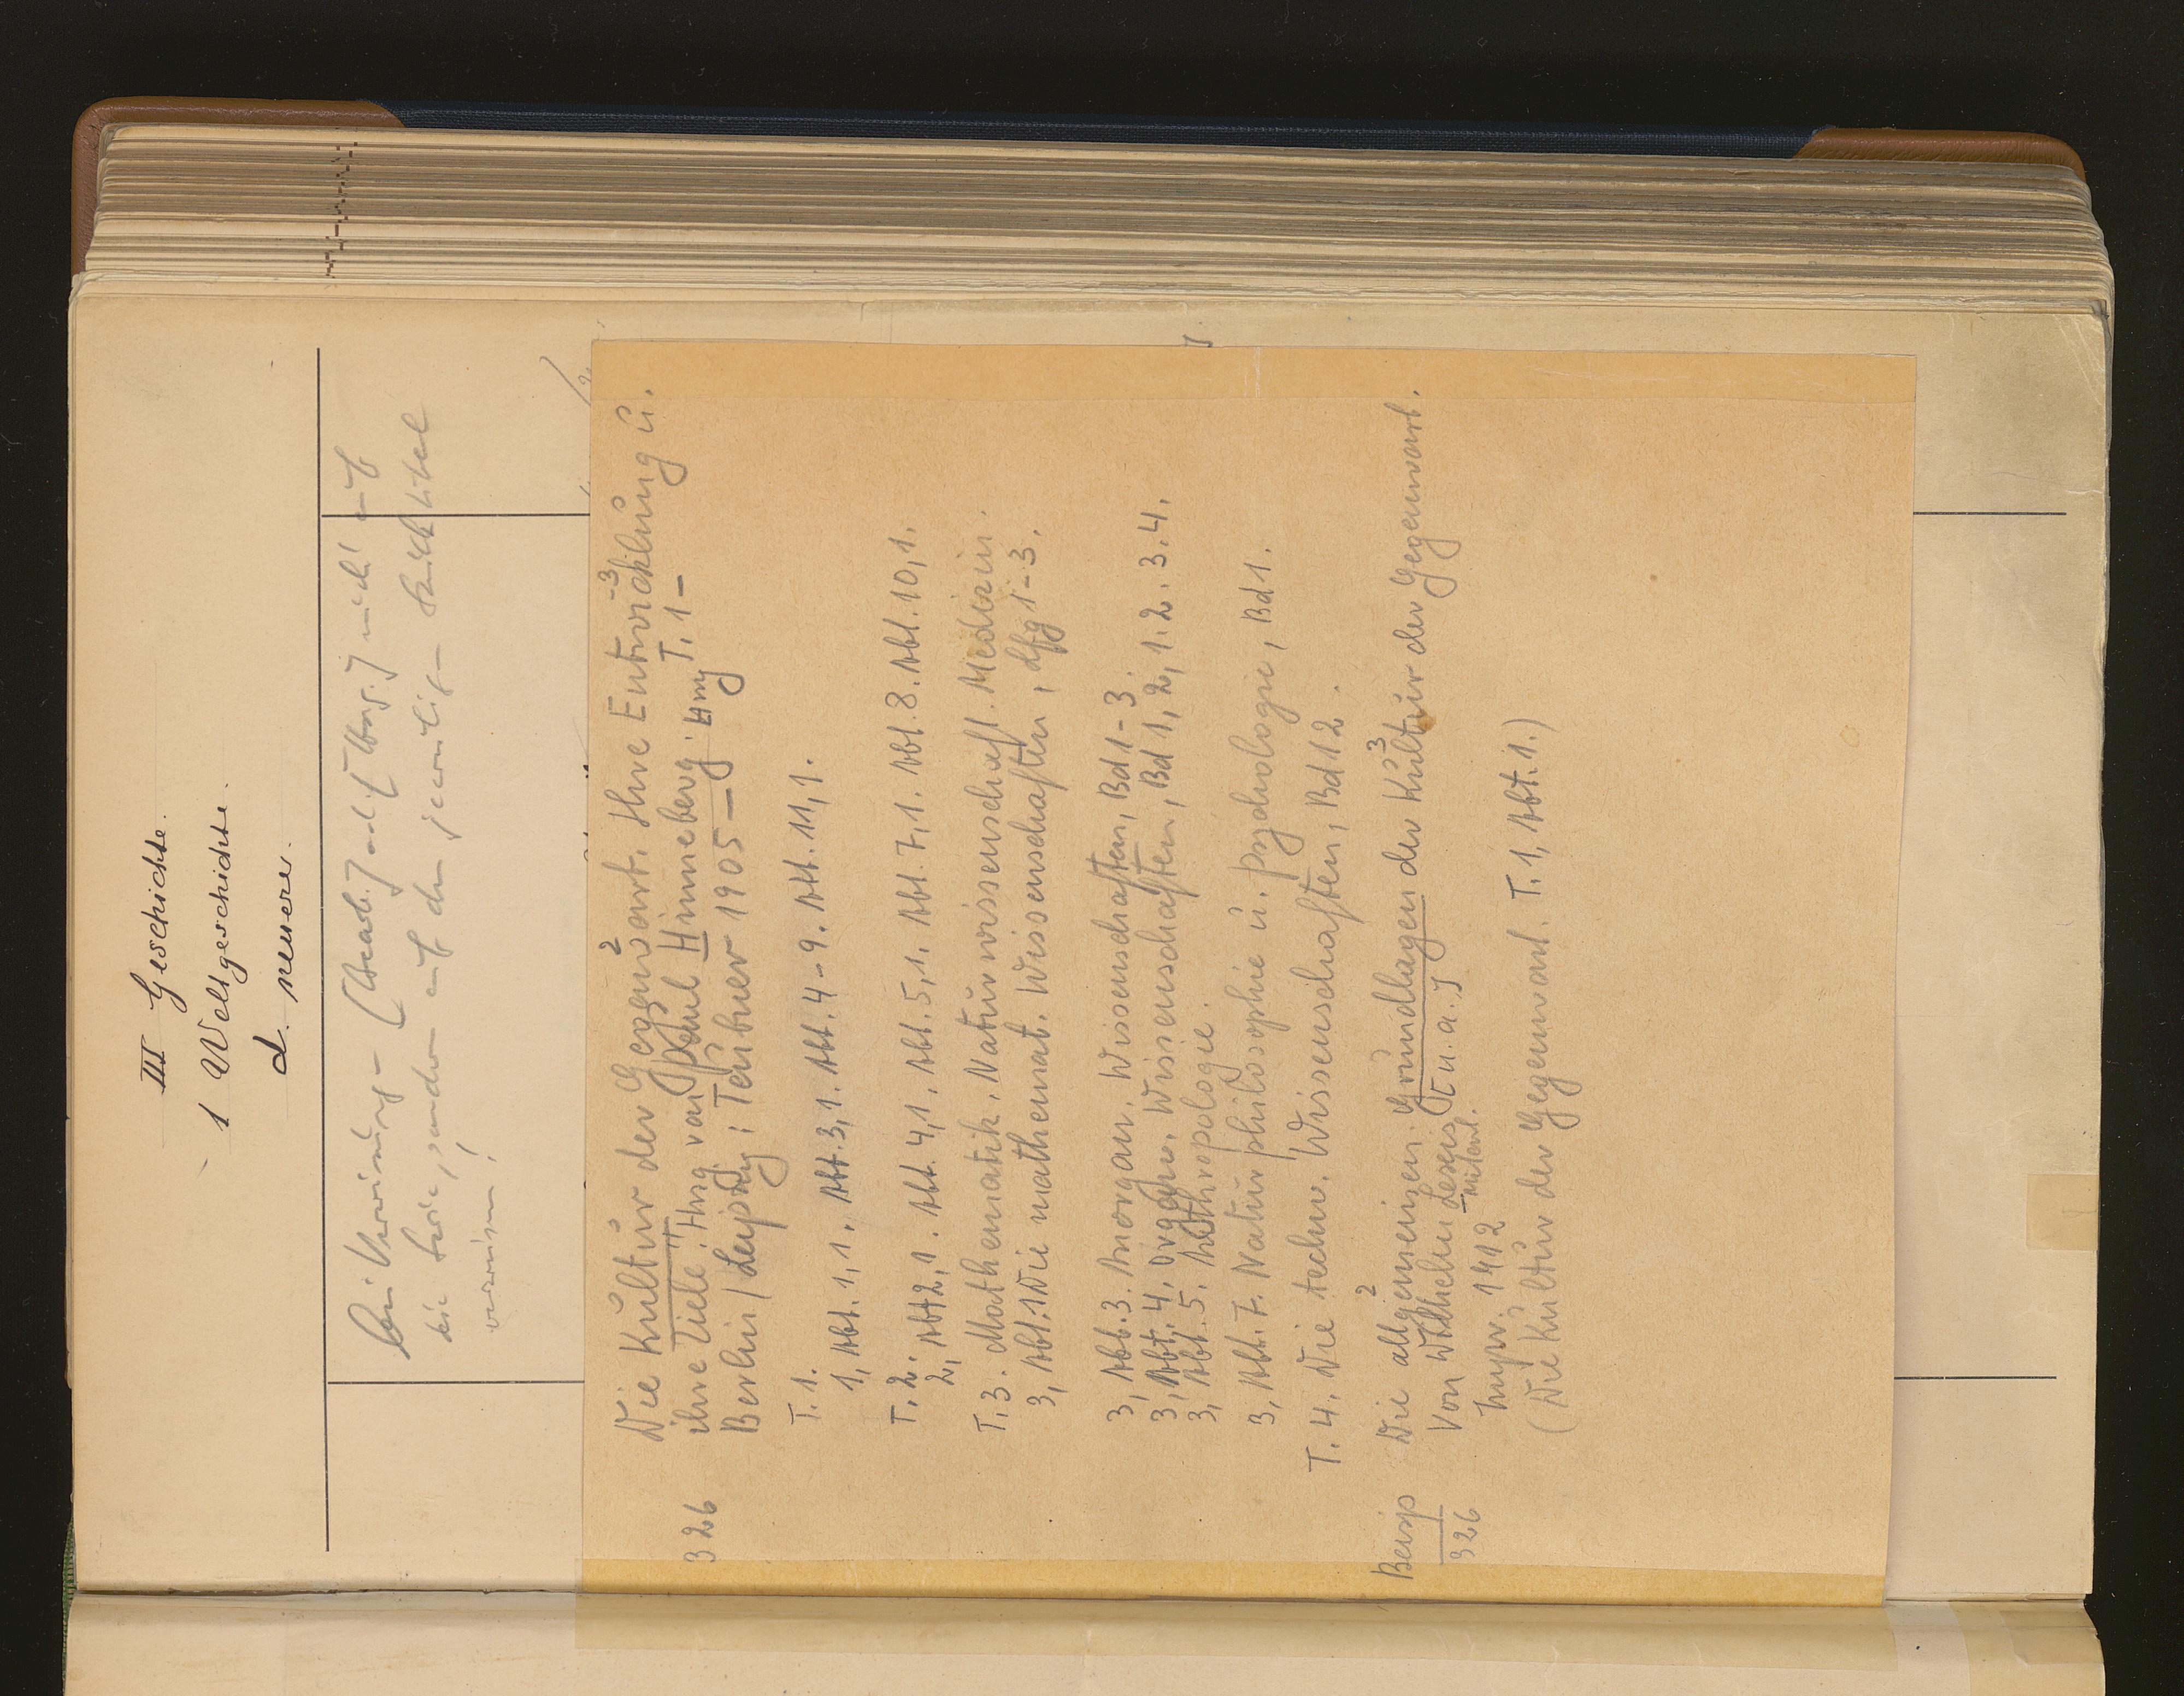 III Geschichte.
1 Weltgeschichte.
d. neuere.
die Serie, sondern auf den
326 Die Kultur der Gegenwart. Ihre Entwicklung u.
ihre Ziele. Hrsg von Paul Hinneberg. T. 1 —
Berlin / Leipzig: Teubner 1905 —
T. 1.
1, Abt. 1, 1. Abt. 3, 1. Abt. 4-9. Abt. 11, 1.
T. 2.
2, Abt 2, 1. Abt. 4, 1. Abt. 5, 1. Abt. 7, 1. Abt. 8. Abt. 10, 1.
T. 3. Mathematik. Naturwissenschaft. Medizin.
3, Abt. 1 Die mathemat. Wissenschaften, Lfg 1-3.
3, Abt. 3. Anorgan. Wissenschaften, Bd 1-3.
3, Abt. 4. Organ. Wissenschaften, Bd 1, 2, 1. 2. 3. 4.
3, Abt. 5. Anthropologie.
3, Abt. 7. Naturphilosophie u. Psychologie, Bd 1.
T. 4. Die techn. Wissenschaften, Bd 12.
Beisp Die allgemeinen Grundlagen der Kultur der Gegenwart.
326 Von Wilhelm Lexis [u. a.]
1912
(Die Kultur der Gegenwart. T. 1, Abt. 1.)